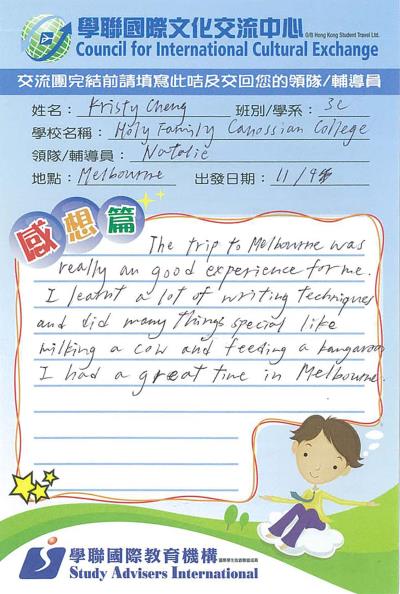 學聯國際文化交流中心 O/B Hong Kong Student Travel Ltd.
Council for International Cultural Exchange
交流團完結前請填寫此咭及交回您的領隊/輔導員
姓名： Kristy Cheng 班別/學系： 3C
學校名稱： Holy Family Canossian College
領隊/輔導員： Natalie
地點： Melbourne 出發日期： 11/9
感想篇
The trip to Melbourne was
really an good experience for me.
I learnt a lot of writing techniques
and did many things special like
milking a cow and feeding a kangaroo
I had a great time in Melbourne.
學聯國際教育機構
Study Advisers International